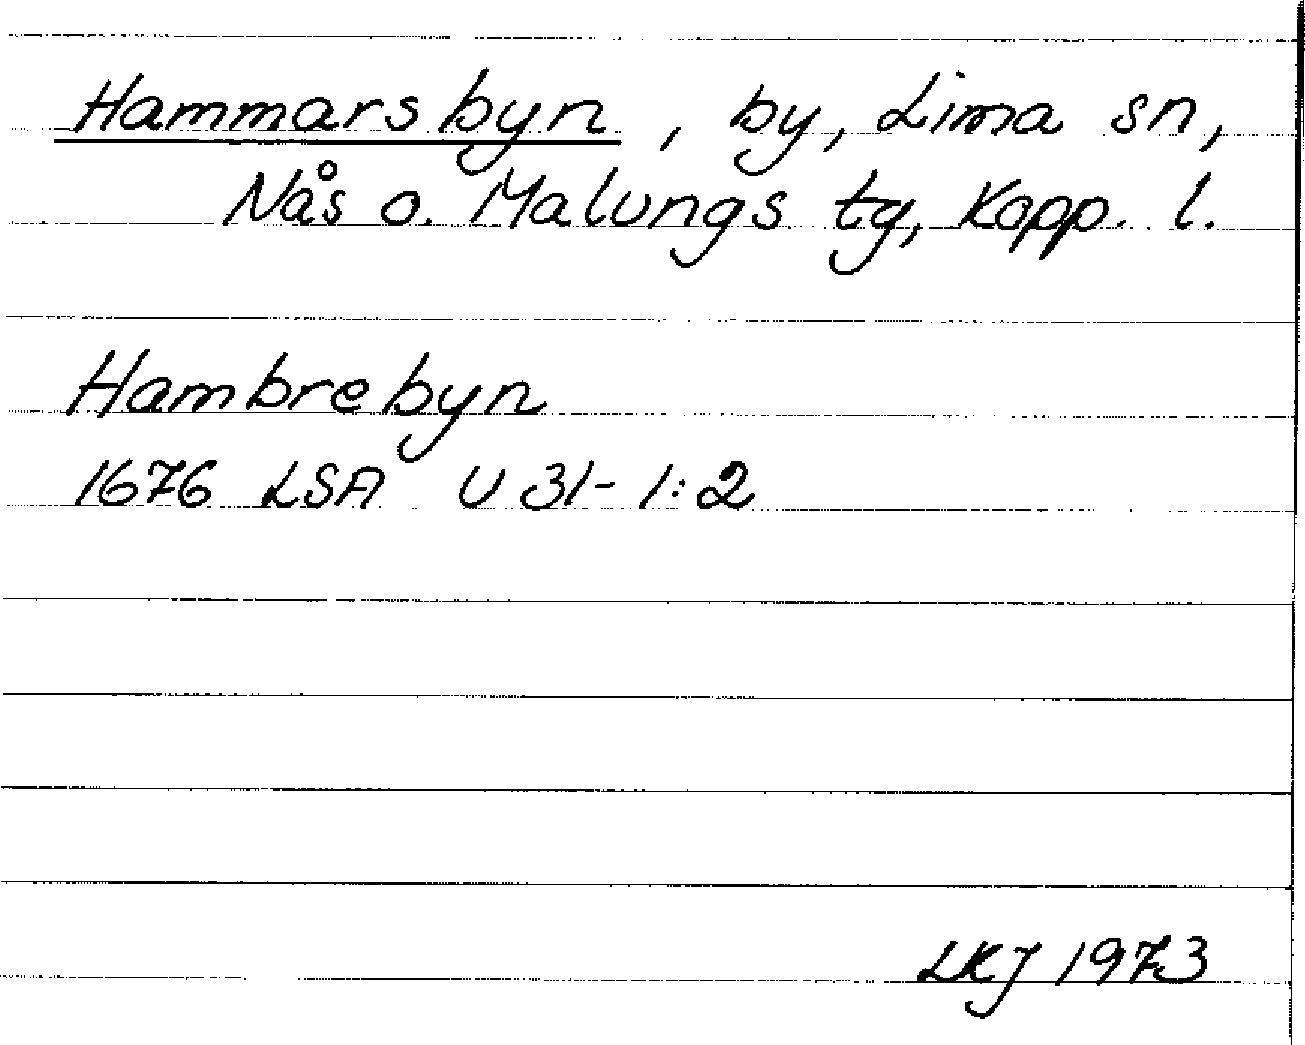 Hammarsbyn, by, Lima sn,
Nås o. Malungs tg, Kopp. l.
Hambrebyn
1676 LSA U 31-1:2
LKJ 1973